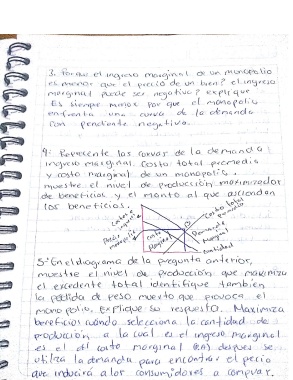 3. Por que el ingreso marginal de un monopolio
es menor que el precio de un bien? el ingreso
marginal puede ser negativo? explique
Es siempre menor por que el monopolio
enfrenta una curva de la demanda
con pendiente negativa.
4: Represente las curvas de la demanda
ingreso marginal, Costo total promedio
y costo marginal de un monopolio.
muestre el nivel de producción maximizador
de beneficios y el monto al que ascienden
los beneficios.
Costos
ingresos
Costo total
Promedio
monopolio
Costo
Demanda
Marginal
Cantidad
5. En el diagrama de la pregunta anterior,
muestre el nivel de producción que maximiza
el excedente total identifique tambien
la perdida de peso muerto que provoca el
monopolio, explique su respuesto. Maximiza
beneficios cuando selecciona la cantidad de
producción a la cual es el ingreso marginal
es el al coste marginal despues se
utiliza la demanda para encontrar el precio
que inducirá a los consumidores a comprar.